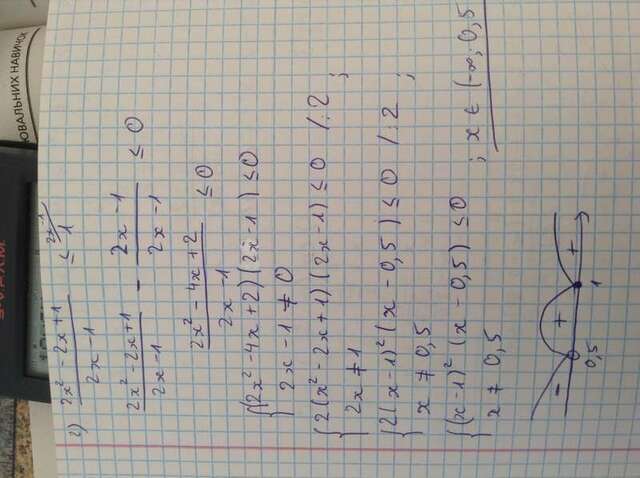 ЮВАЛЬНИХ НАВИЧОК
2) (2x² - 2x + 1)/(2x - 1) ≤ 1 \ 2x - 1
(2x² - 2x + 1)/(2x - 1) - (2x - 1)/(2x - 1) ≤ 0
(2x² - 4x + 2)/(2x - 1) ≤ 0
{ (2x² - 4x + 2)(2x - 1) ≤ 0
2x - 1 ≠ 0
{ 2(x² - 2x + 1)(2x - 1) ≤ 0 /:2 ;
2x ≠ 1
{ 2(x - 1)² (x - 0,5) ≤ 0 /:2 ;
x ≠ 0,5
{ (x - 1)² (x - 0,5) ≤ 0 ; x ∈ (-∞; 0,5
x ≠ 0,5
- + +
0,5 1